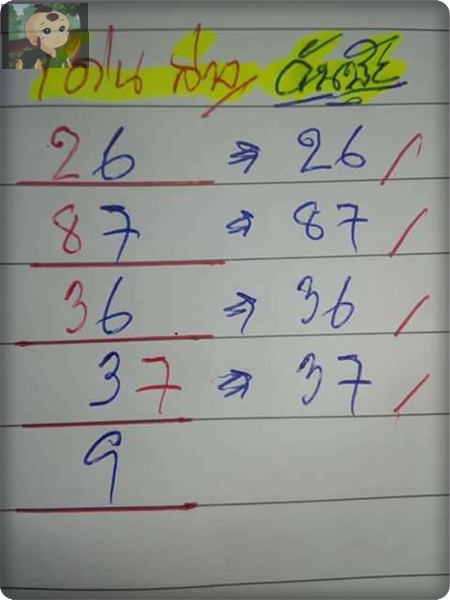 เด่น ล่าง
26 ⇒ 26 /
87 ⇒ 87 /
36 ⇒ 36 /
37 ⇒ 37 /
9